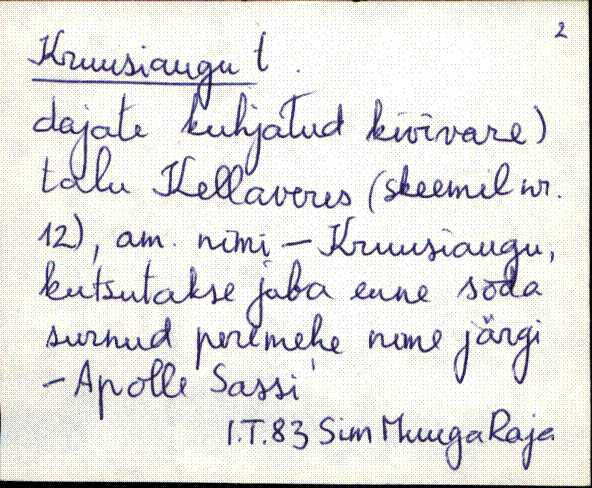 2
Kruusiaugu t.
dajate kuhjatud kivivare)
talu Kellaveres (skeemil nr.
12), am. nimi – Kruusiaugu,
kutsutakse juba enne sõda
surnud peremehe nime järgi
– Apolle Sassi
I.T.83 Sim Muuga Raja